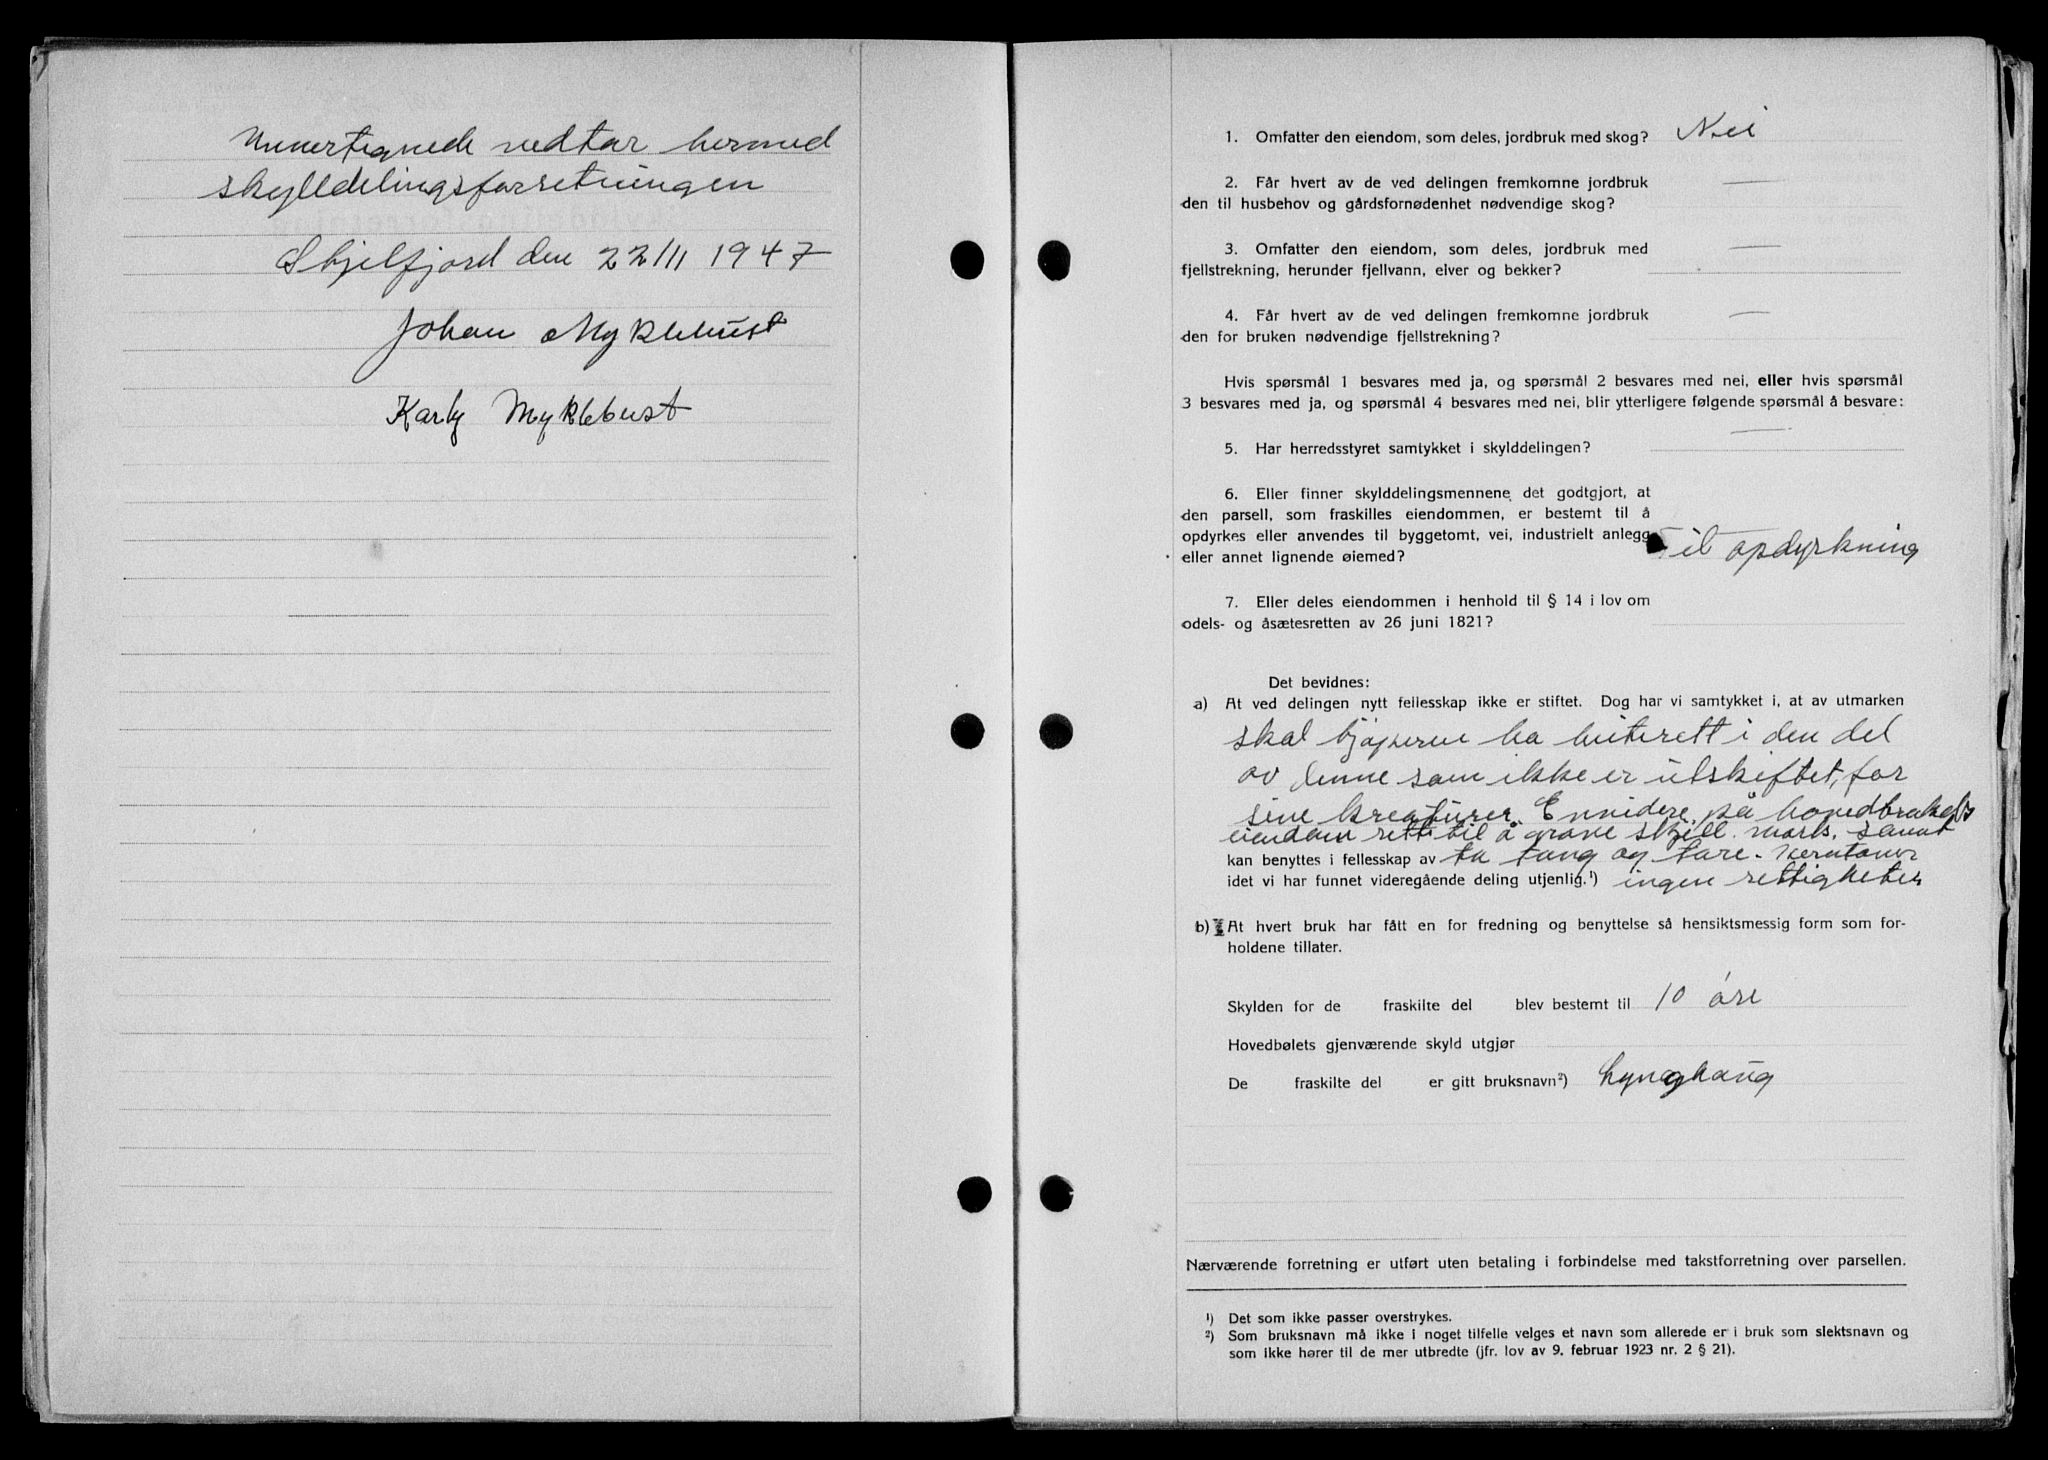 Unnertegnede vedtar hermed
skylldelingsforretningen
Skjelfjord den 22/11 1947
Johan Myklebust
Karly Myklebust
1. Omfatter den eiendom, som deles, jordbruk med skog? Nei
2. Får hvert av de ved delingen fremkomne jordbruk —
den til husbehov og gårdsfornødenhet nødvendige skog?
3. Omfatter den eiendom, som deles, jordbruk med —
fjellstrekning, herunder fjellvann, elver og bekker?
4. Får hvert av de ved delingen fremkomne jordbruk —
den for bruken nødvendige fjellstrekning?
Hvis spørsmål 1 besvares med ja, og spørsmål 2 besvares med nei, eller hvis spørsmål
3 besvares med ja, og spørsmål 4 besvares med nei, blir ytterligere følgende spørsmål å besvare:
5. Har herredsstyret samtykket i skylddelingen? —
6. Eller finner skylddelingsmennene det godtgjort, at
den parsell, som fraskilles eiendommen, er bestemt til å
opdyrkes eller anvendes til byggetomt, vei, industrielt anlegg
eller annet lignende øiemed? Til opdyrkning
7. Eller deles eiendommen i henhold til § 14 i lov om
odels- og åsætesretten av 26 juni 1821?
Det bevidnes:
a) At ved delingen nytt fellesskap ikke er stiftet. Dog har vi samtykket i, at av utmarken
skal kjøperne ha beiterett i den del
av denne som ikke er utskiftet, for
sine kreaturer. Ennvidere på hovedbrukets
eiendom rett til å grave skjell, mark, samt
kan benyttes i fellesskap av ta tang og tare. Herutover
idet vi har funnet videregående deling utjenlig.¹) ingen rettigheter
b) At hvert bruk har fått en for fredning og benyttelse så hensiktsmessig form som for-
holdene tillater.
Skylden for de fraskilte del blev bestemt til 10 øre
Hovedbølets gjenværende skyld utgjør
De fraskilte del er gitt bruksnavn²) Lynghaug
Nærværende forretning er utført uten betaling i forbindelse med takstforretning over parsellen.
¹) Det som ikke passer overstrykes.
²) Som bruksnavn må ikke i noget tilfelle velges et navn som allerede er i bruk som slektsnavn og
som ikke hører til de mer utbredte (jfr. lov av 9. februar 1923 nr. 2 § 21).